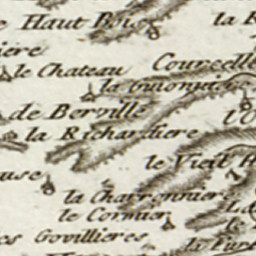 Haut Bois
la
le Chateau
Courcelle
la Guionniere
de Berville
la Richardiere
le Vieil
la Charronniere
le Cormier
Govillieres